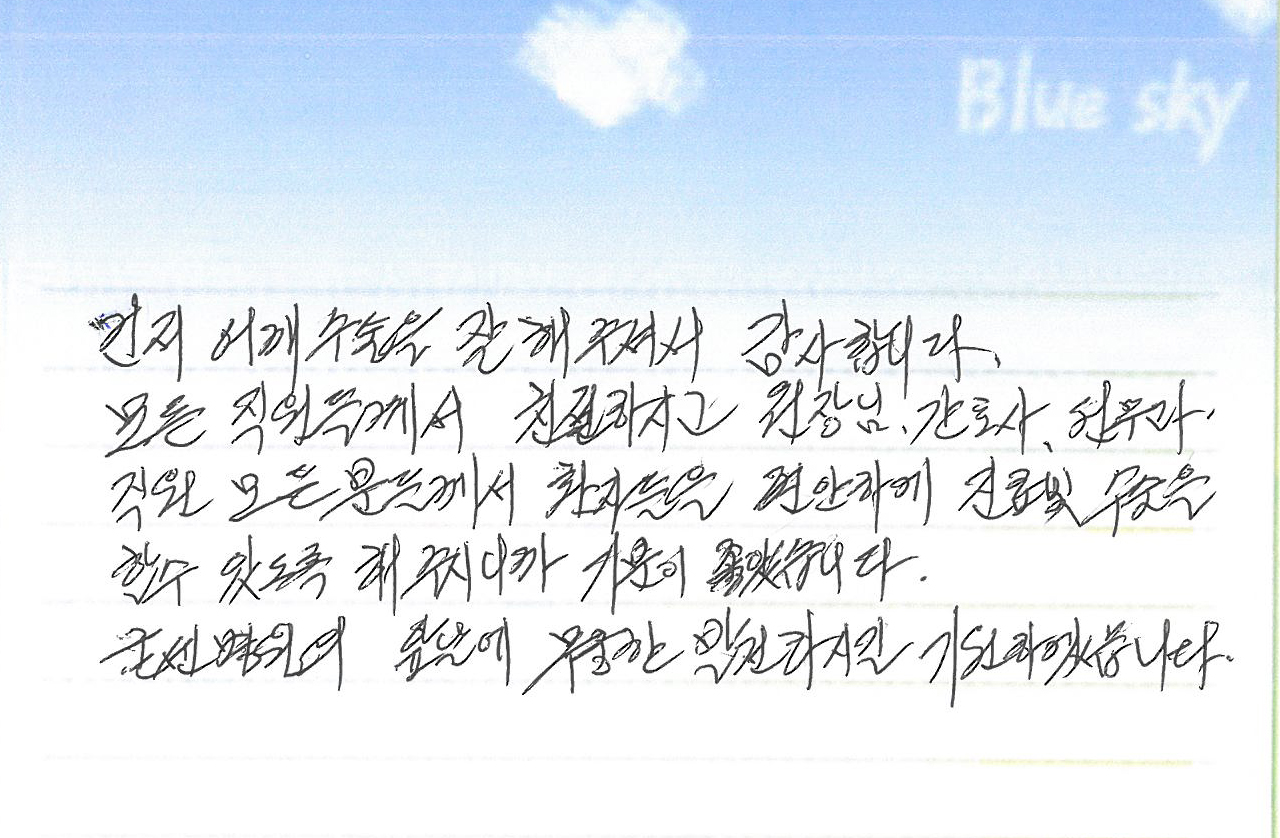 Blue sky
먼저 어깨 수술을 잘 해 주셔서 감사합니다.
모든 직원들께서 친절하시고 원장님, 간호사, 원무과.
직원 모든분들께서 환자들을 편안하게 진료및 수술을
할수 있도록 해 주시니까 기분이 좋았습니다.
병원의 앞날에 무궁한 발전하시길 기원하겠습니다.